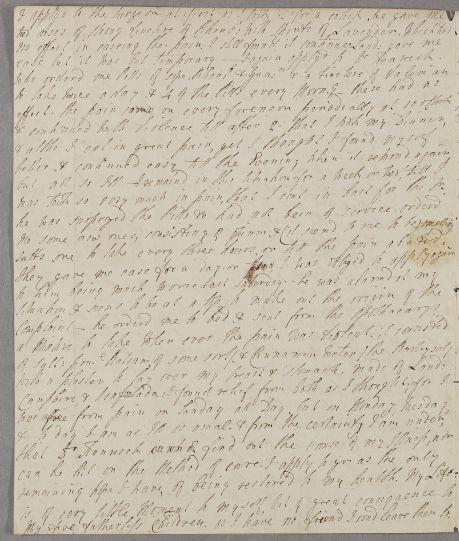 I apply'd to the Surgeon at first as being for a colick, he gave me
two doses of strong Tincture of Rhubarb with Spirits of Lavender, which had
no effect in easeing the pain. I still found it continued, and gave me
ease but it was but temporary. I again apply'd to Dr Fonwech
who ordered me Pills of & a tincture of Valerian
to take twice a day & 4 of the Pills every Morng these had no
effect. the pain came on every forenoon periodically, at 10 o'clock
& continued with violence till after 2 that I took my Dinner,
& altho I eat in great pain, yet I thought I found myself
better & continued easy till the Evening when it returnd again
but all so still I remaind in this situation for a week or two, till I
was took so very much in pain, that I sent in haste for the Dr
he was surprized the Pills had not been of service, orderd
me some new ones, consisting of opium, & (it seemd to me to be)
one to take every three hours, or till the pain abated.
they gave me ease for a day or I was obliged to apply again
to him being much worse last Saturday - he was alarmed at my
situation & seem'd to be at a loss to make out the origin of the
complaint - he orderd me to bed & sent from the Apothecary's
a Mixture to take when ever the pain was violent, it consisted
of salts, from Balsam of some sort, & Cinnamon water,
with a plaster to lay over my breast & stomach, made of
Camphire & I found relief from both as I thought, for I
was free from pain on Sunday all day, but on Monday, Tuesday
& to day I am as ill as usual. & from the certainty I am under
that Dr Fonwech cannot find out the cause of my Illness, nor
can he hit on the Method of cure I apply to you as the only
remaining hope I have of being restored to my health. My Life
is of very little Moment to myself, but of great consequence to
My five fatherless Children, as I have no friend I cou'd leave them to